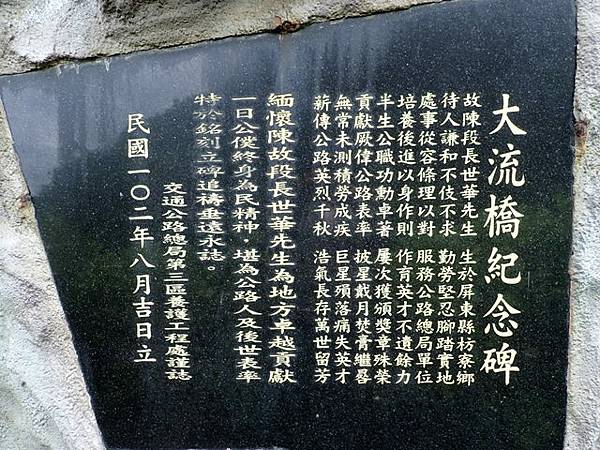 大流橋紀念碑
故陳段長世華先生 生於屏東縣枋寮鄉
待人謙和不伎不求 勤勞堅忍腳踏實地
處事從容條理以對 服務公路總局單位
培養後進以身作則 作育英才不遺餘力
半生公職功動卓著 屢次獲頒獎章殊榮
貢獻厥偉公路表率 披星戴月焚膏繼晷
無常未測積勞成疾 巨星殞落痛失英才
薪傳公路英烈千秋 浩氣長存萬世留芳
緬懷陳故段長世華先生為地方卓越貢獻
一日公僕終身為民精神,堪為公路人及後世表率
特於銘刻立碑追禱垂遠永誌。
交通公路總局第三區養護工程處謹誌
民國一〇二年八月吉日立